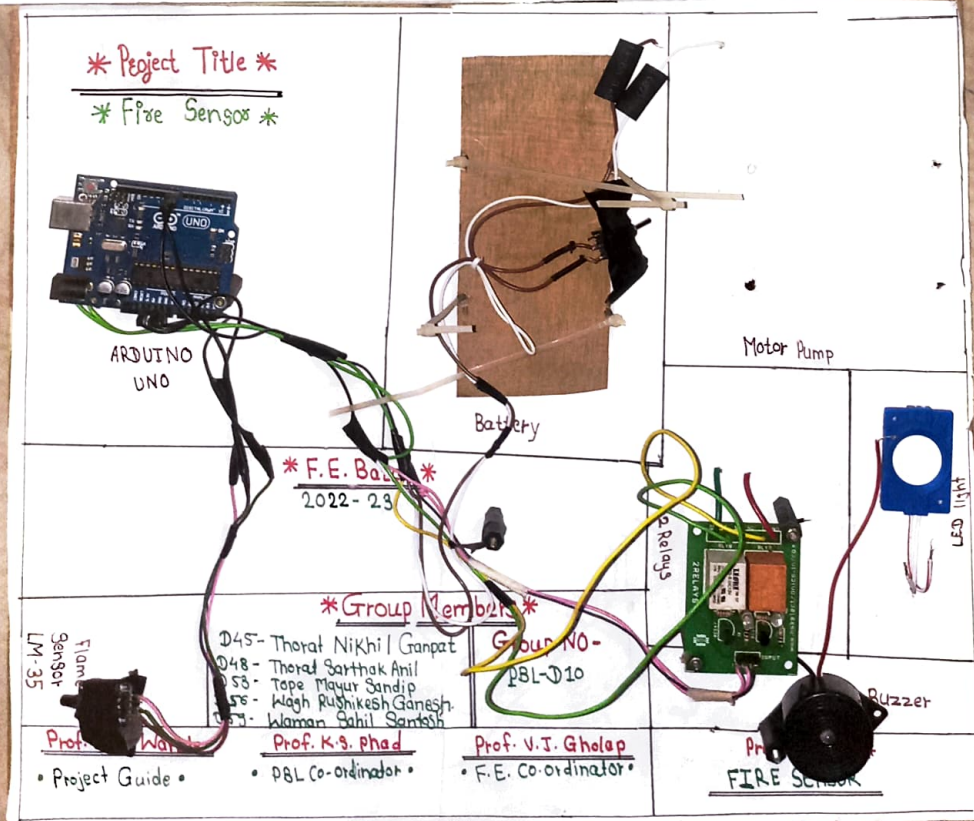 * Project Title *
* Fire Sensor *
UNO
ARDUINO
UNO
Battery
Motor Pump
* F.E. *
2022-23
2 Relays
2RELAYS
LED light
* Group Members *
D45- Thorat Nikhil Ganpat
D48- Thorat Sarthak Anil
D53- Tope Mayur Sandip
D56- Wagh Rushikesh Ganesh.
Waman Sahil Santosh
Group NO-
PBL-D10
Flame
Sensor
LM-35
Buzzer
Prof.
• Project Guide •
Prof. K.S. Phad
• PBL Co-ordinator •
Prof. V.J. Gholap
• F.E. Co-ordinator •
FIRE SENSOR